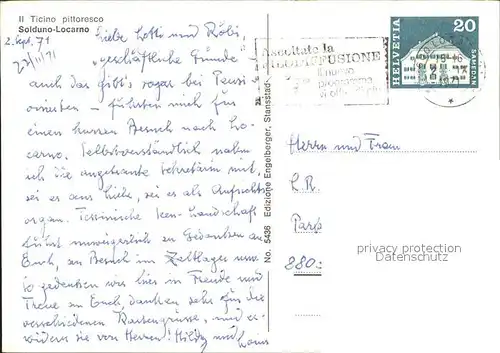 Il Ticino pittoresco
Solduno-Locarno
2. Sept. 71
Liebe Lotto und Röbi,
"geschäftliche Gründe" –
auch das gibt's sogar bei Pensi-
onierten – führten mich für
einen kurzen Besuch nach Lo-
carno. Selbstverständlich nahm
ich die angetraute Sekretärin mit,
sei es aus Liebe, sei es als Aufsichts-
organ. Tessinische Seen-Landschaft
führt unweigerlich zu Gedanken an
Euch, an Besuch im Zeltlager usw.
So gedenken wir hier in Freude und
Treue an Euch, danken sehr für die
verschiedenen Kartengrüsse, und er-
widern sie von Herzen! Hildy und Louis
No. 5436 Edizione Engelberger, Stansstad
Ascoltate la
FILODIFFUSIONE
il nuovo
programma
HELVETIA
20
SAMEDAN
Herrn und Frau
privacy protection
Datenschutz
880